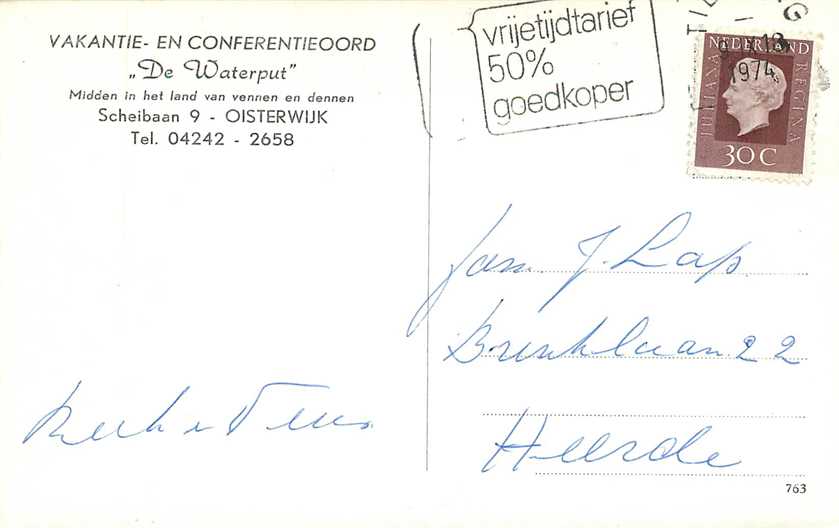 VAKANTIE- EN CONFERENTIEOORD
„De Waterput"
Midden in het land van vennen en dennen
Scheibaan 9 - OISTERWIJK
Tel. 04242 - 2658
vrijetijdtarief
50%
goedkoper
TIL G
1974
NEDERLAND
JULIANA REGINA
30 C
Fam. J. Lap
Brinklaan 22
Heerde
763